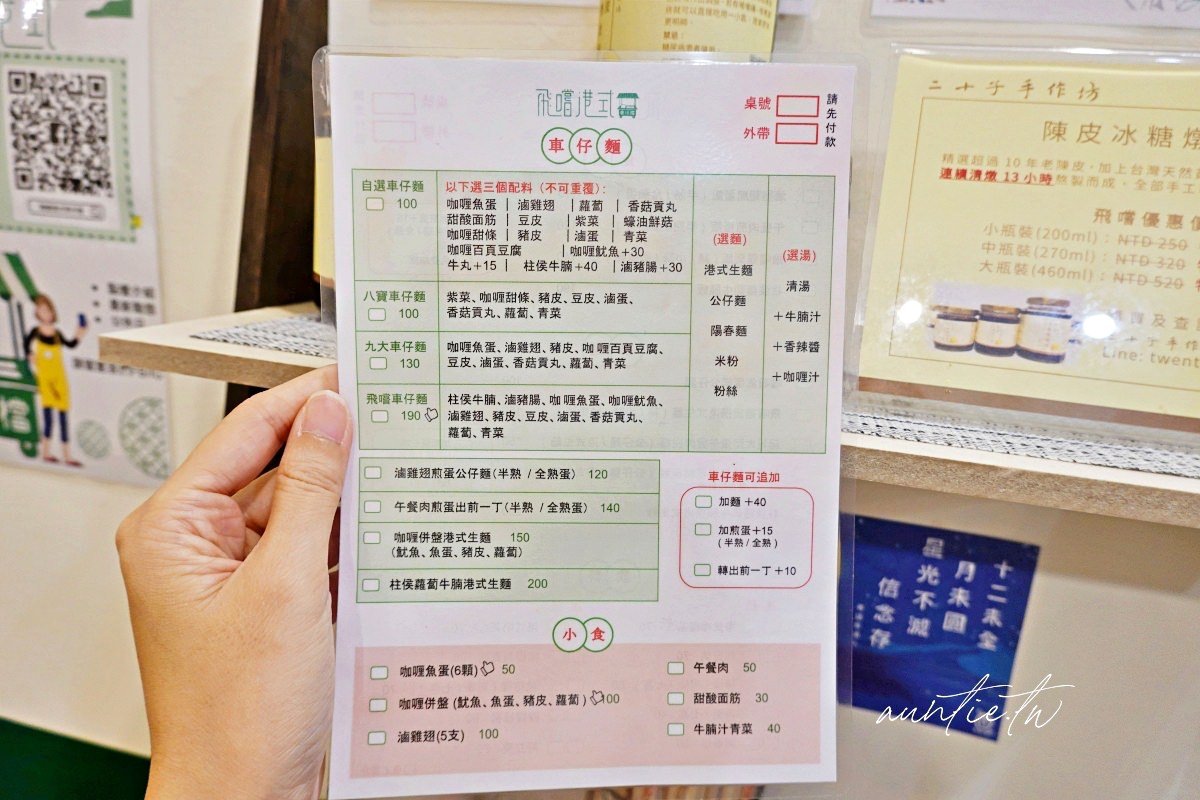 飛嚐港式
車仔麵
桌號
外帶
請先付款
自選車仔麵
100
以下選三個配料（不可重覆）：
咖喱魚蛋 | 滷雞翅 | 蘿蔔 | 香菇貢丸
甜酸面筋 | 豆皮 | 紫菜 | 蠔油鮮菇
咖喱甜條 | 豬皮 | 滷蛋 | 青菜
咖喱百頁豆腐 | 咖喱魷魚+30
牛丸+15 | 柱侯牛腩+40 | 滷豬腸+30
八寶車仔麵
100
紫菜、咖喱甜條、豬皮、豆皮、滷蛋、
香菇貢丸、蘿蔔、青菜
九大車仔麵
130
咖喱魚蛋、滷雞翅、豬皮、咖喱百頁豆腐、
豆皮、滷蛋、香菇貢丸、蘿蔔、青菜
飛嚐車仔麵
190
柱侯牛腩、滷豬腸、咖喱魚蛋、咖喱魷魚、
滷雞翅、豬皮、豆皮、滷蛋、香菇貢丸、
蘿蔔、青菜
(選麵)
港式生麵
公仔麵
陽春麵
米粉
粉絲
(選湯)
清湯
＋牛腩汁
＋香辣醬
＋咖喱汁
滷雞翅煎蛋公仔麵(半熟 / 全熟蛋) 120
午餐肉煎蛋出前一丁(半熟 / 全熟蛋) 140
咖喱併盤港式生麵 150
(魷魚、魚蛋、豬皮、蘿蔔)
柱侯蘿蔔牛腩港式生麵 200
車仔麵可追加
加麵 +40
加煎蛋+15
(半熟 / 全熟)
轉出前一丁 +10
小食
咖喱魚蛋(6顆) 50
咖喱併盤 (魷魚、魚蛋、豬皮、蘿蔔) 100
滷雞翅(5支) 100
午餐肉 50
甜酸面筋 30
牛腩汁青菜 40
二十子手作坊
陳皮冰糖燉
精選超過 10 年老陳皮，加上台灣天然
連續清燉 13 小時熬製而成，全部手工
飛嚐優惠價
小瓶裝(200ml)：NTD 250
中瓶裝(270ml)：NTD 320
大瓶裝(460ml)：NTD 520
Line: twent
十二未全
月未圓
星光不滅
信念存
auntie.tw